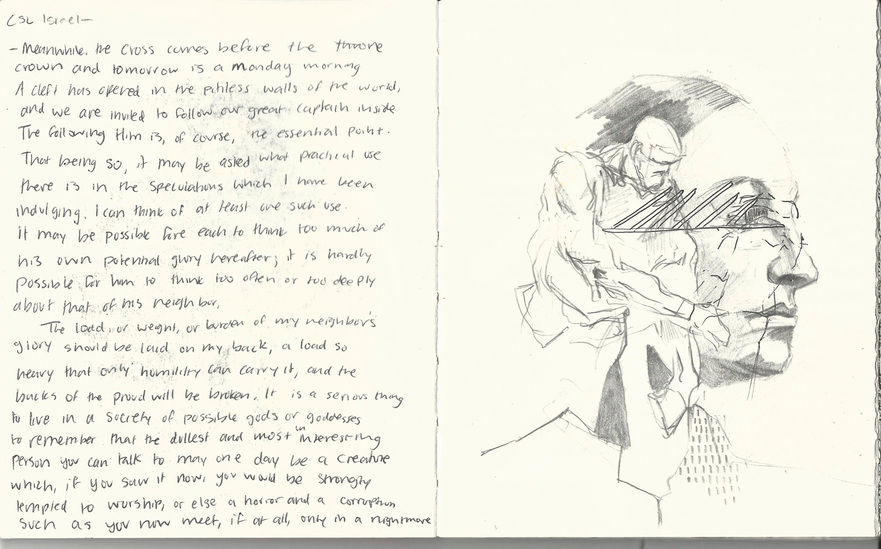 CSL Israel—
– Meanwhile. the Cross comes before the throne
crown and tomorrow is a monday morning
A cleft has opened in the pitiless walls of the world,
and we are invited to follow our great captain inside
The following Him is, of course, the essential point.
That being so, it may be asked what practical use
there is in the speculations which I have been
indulging. I can think of at least one such use.
it may be possible fore each to think too much of
his own potential glory hereafter; it is hardly
possible for him to think too often or too deeply
about that of his neighbor.
The load, or weight, or burden of my neighbor's
glory should be laid on my back, a load so
heavy that only humility can carry it, and the
backs of the proud will be broken. It is a serious thing
to live in a society of possible gods or goddesses
to remember that the dullest and most uninteresting
person you can talk to may one day be a creature
which, if you saw it now, you would be strongly
tempted to worship, or else a horror and a corruption
such as you now meet, if at all, only in a nightmare